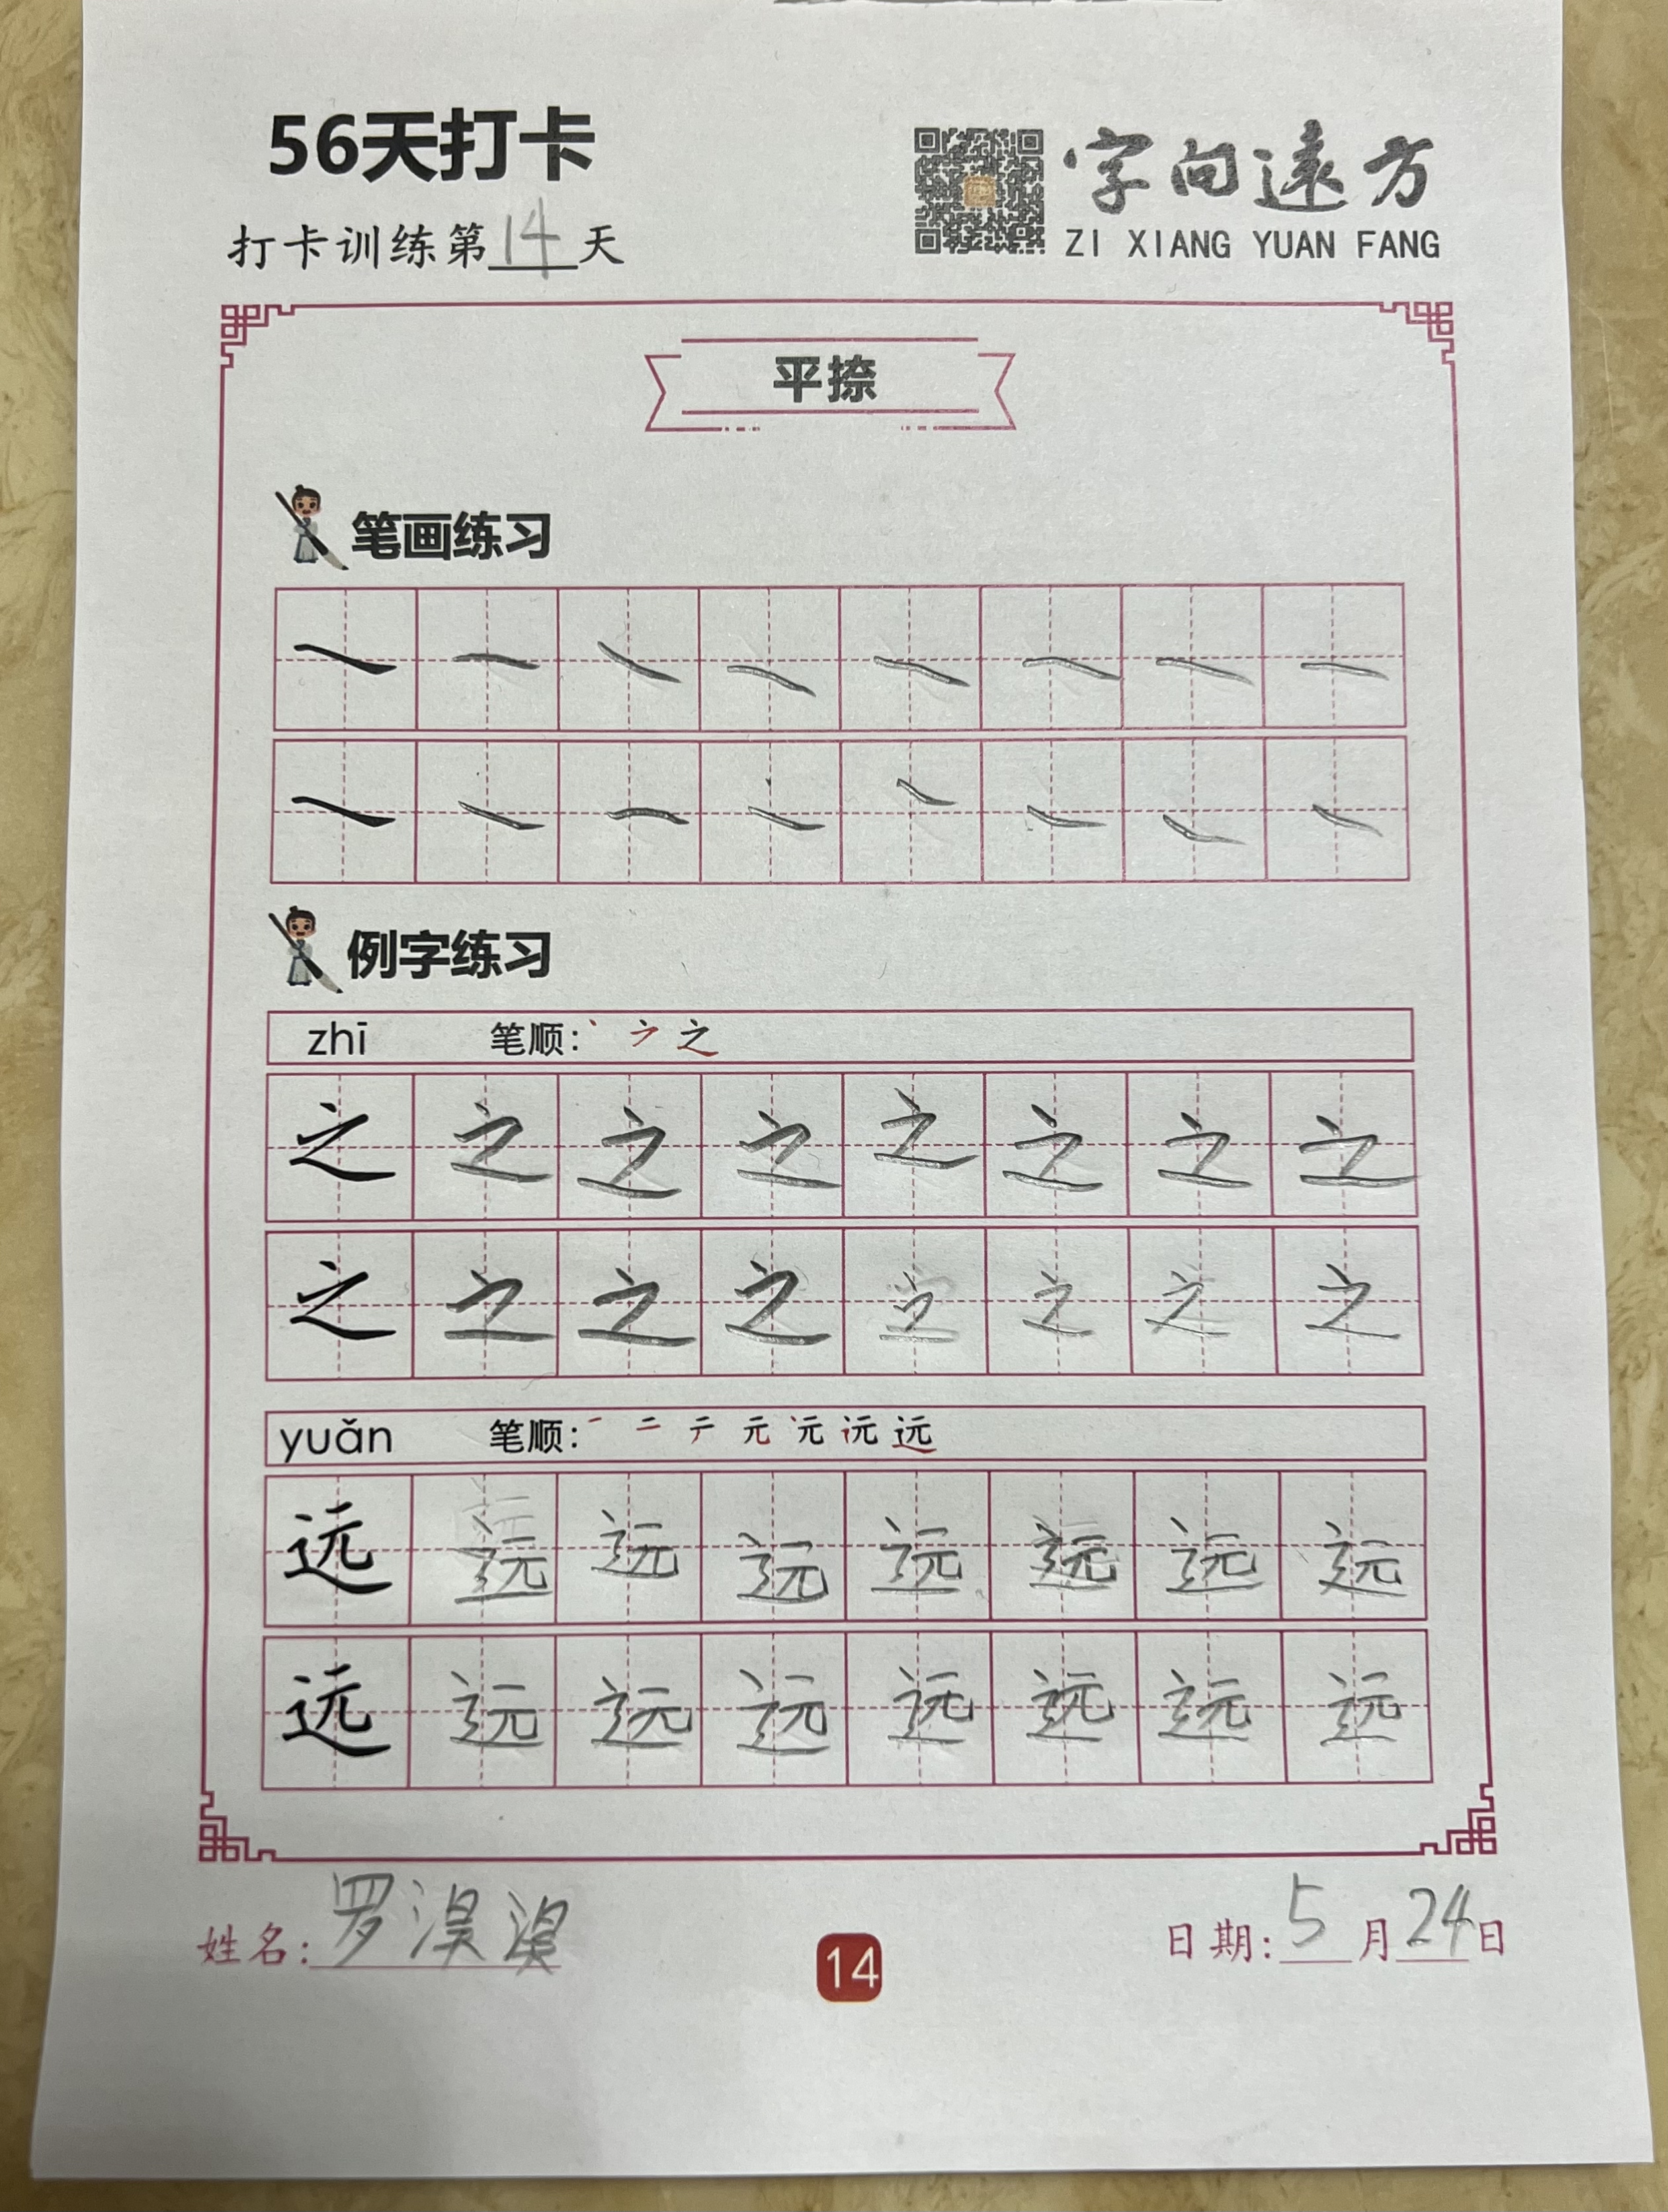 56天打卡
字向遠方
打卡训练第14天
ZI XIANG YUAN FANG
平捺
笔画练习
例字练习
zhī 笔顺: 丶 之
之 之 之 之 之 之 之 之
之 之 之 之 之 之 之 之
yuǎn 笔顺: 一 二 元 远
远 远 远 远 远 远 远 远
远 远 远 远 远 远 远 远
姓名: 罗淏
14
日期: 5月24日